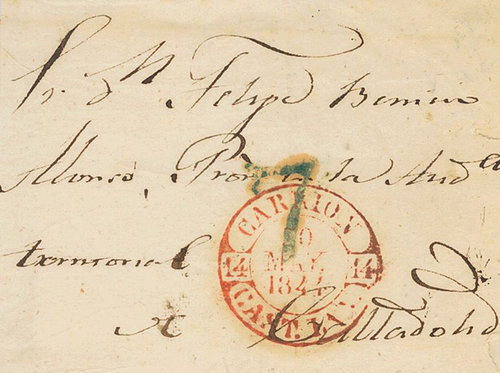 Sr. Dn. Felipe Benicio
Alonso, Pror. en la Auda.
territorial
a Valladolid
7
CARRION
14 MAY. 14
184
CAST. LA V.